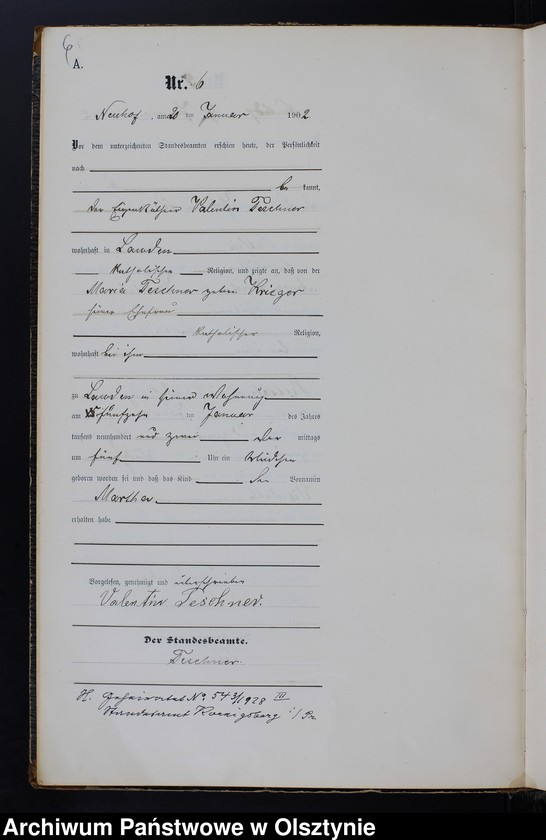 6
A.
Nr. 6
Neuhof, am 20 ten Januar 1902
Vor dem unterzeichneten Standesbeamten erschien heute, der Persönlichkeit
nach
be kannt,
der Eigenkäthner Valentin Teschner
wohnhaft in Lauden
katholischer Religion, und zeigte an, daß von der
Maria Teschner geborn Krieger
seiner Ehefrau
katholischer Religion,
wohnhaft bei ihm
zu Lauden in seiner Wohnung
am fünfzehn ten Januar des Jahres
tausend neunhundert und zwei Vor mittags
um fünf Uhr ein Mädchen
geboren worden sei und daß das Kind den Vornamen
Martha
erhalten habe
Vorgelesen, genehmigt und unterschrieben
Valentin Teschner.
Der Standesbeamte.
Teschner.
H. Geheiratet No. 543/1928 III
Standesamt Koenigsberg i/Pr.
Archiwum Państwowe w Olsztynie